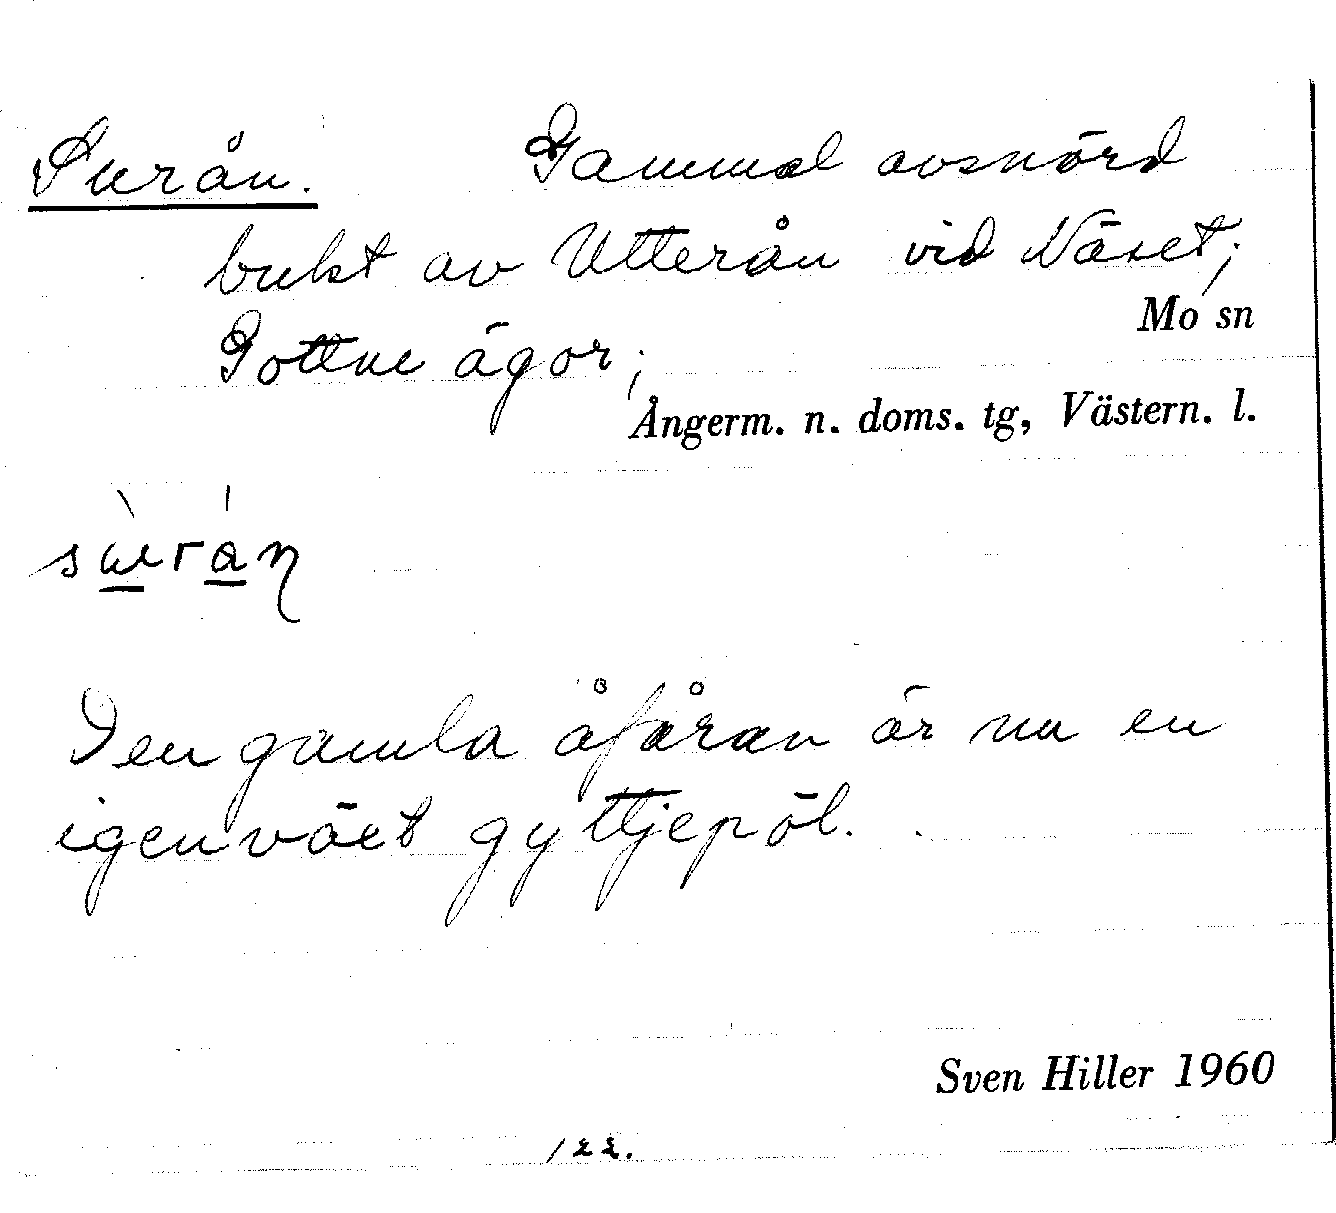 Surån. Gammal avsnörd
bukt av Utterån vid Näset;
Mo sn
Gottne ägor;
Ångerm. n. doms. tg, Västern. l.
sùrán
Den gamla åfåran är nu en
igenväxt gyttjepöl.
Sven Hiller 1960
122.